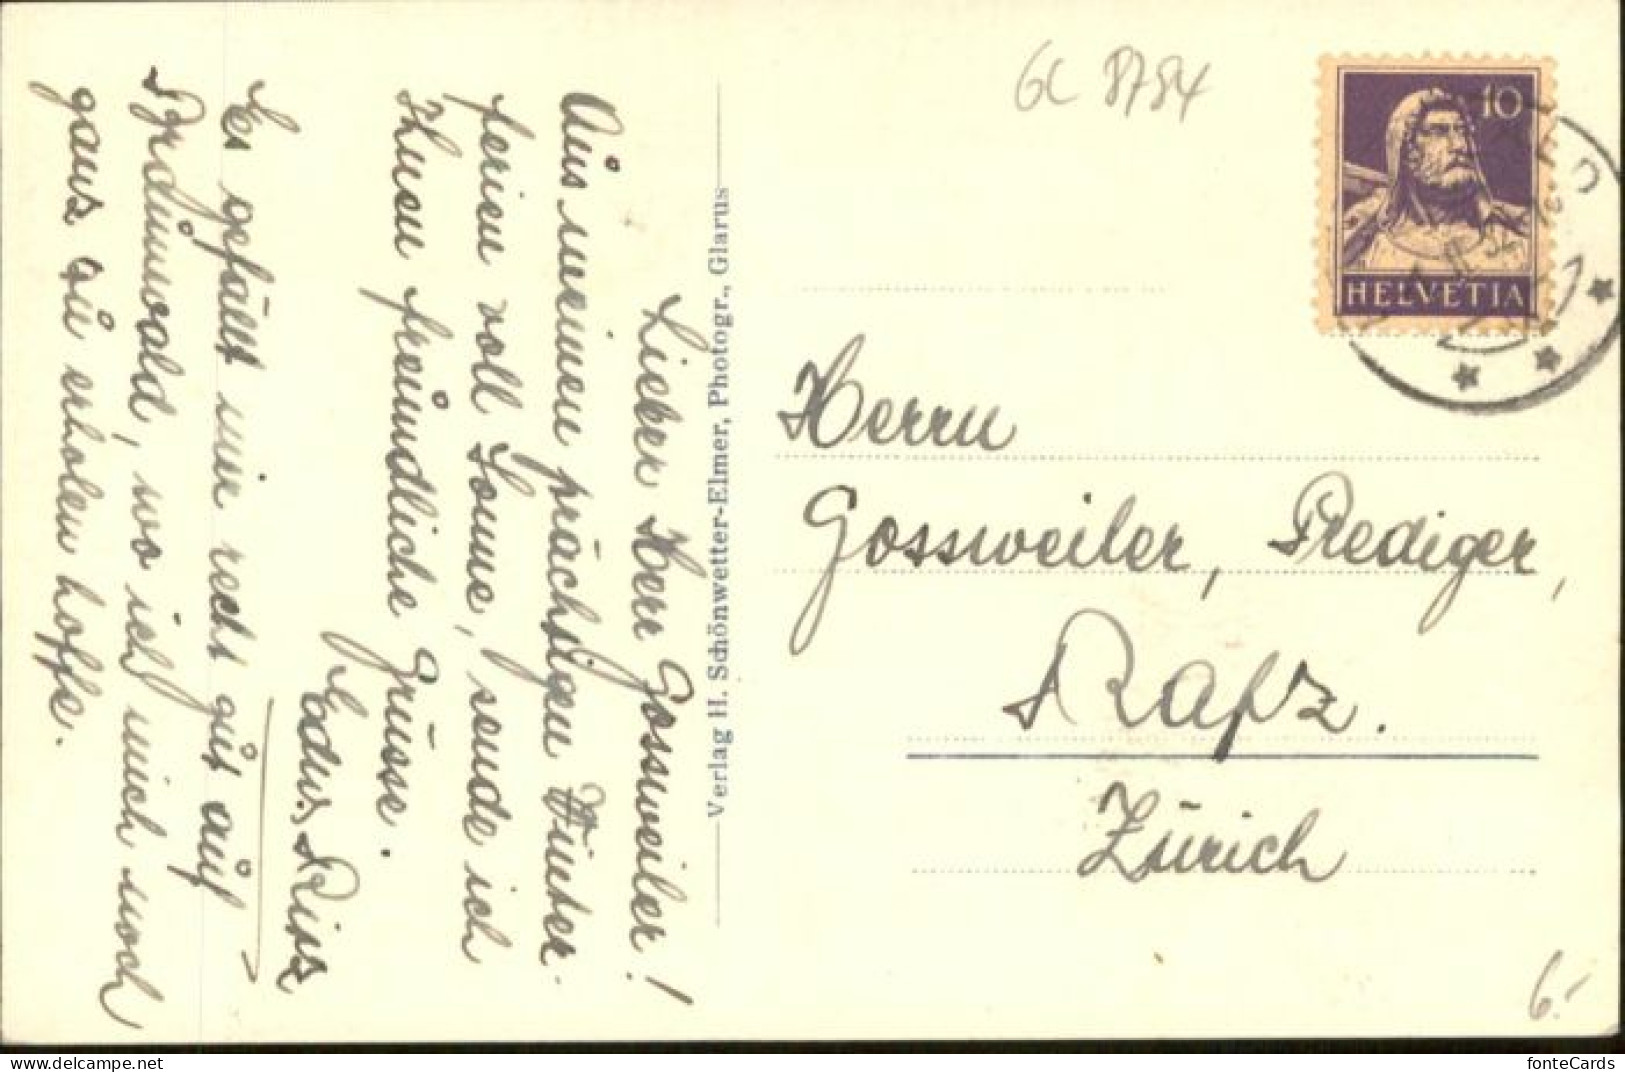 Lieber Herr Gossweiler!
Aus meinen prächtigen Winter-
ferien voll Sonne, sende ich
Ihnen freundliche Grüsse.
Es gefällt mir recht gut auf
Brdünwald, wo ich mich noch
ganz zu erholen hoffe.
Verlag H. Schönwetter-Elmer, Photogr., Glarus
GC 8784
10
HELVETIA
Herrn
Gossweiler, Prediger,
Rafz.
Zürich
6.-
fonteCards